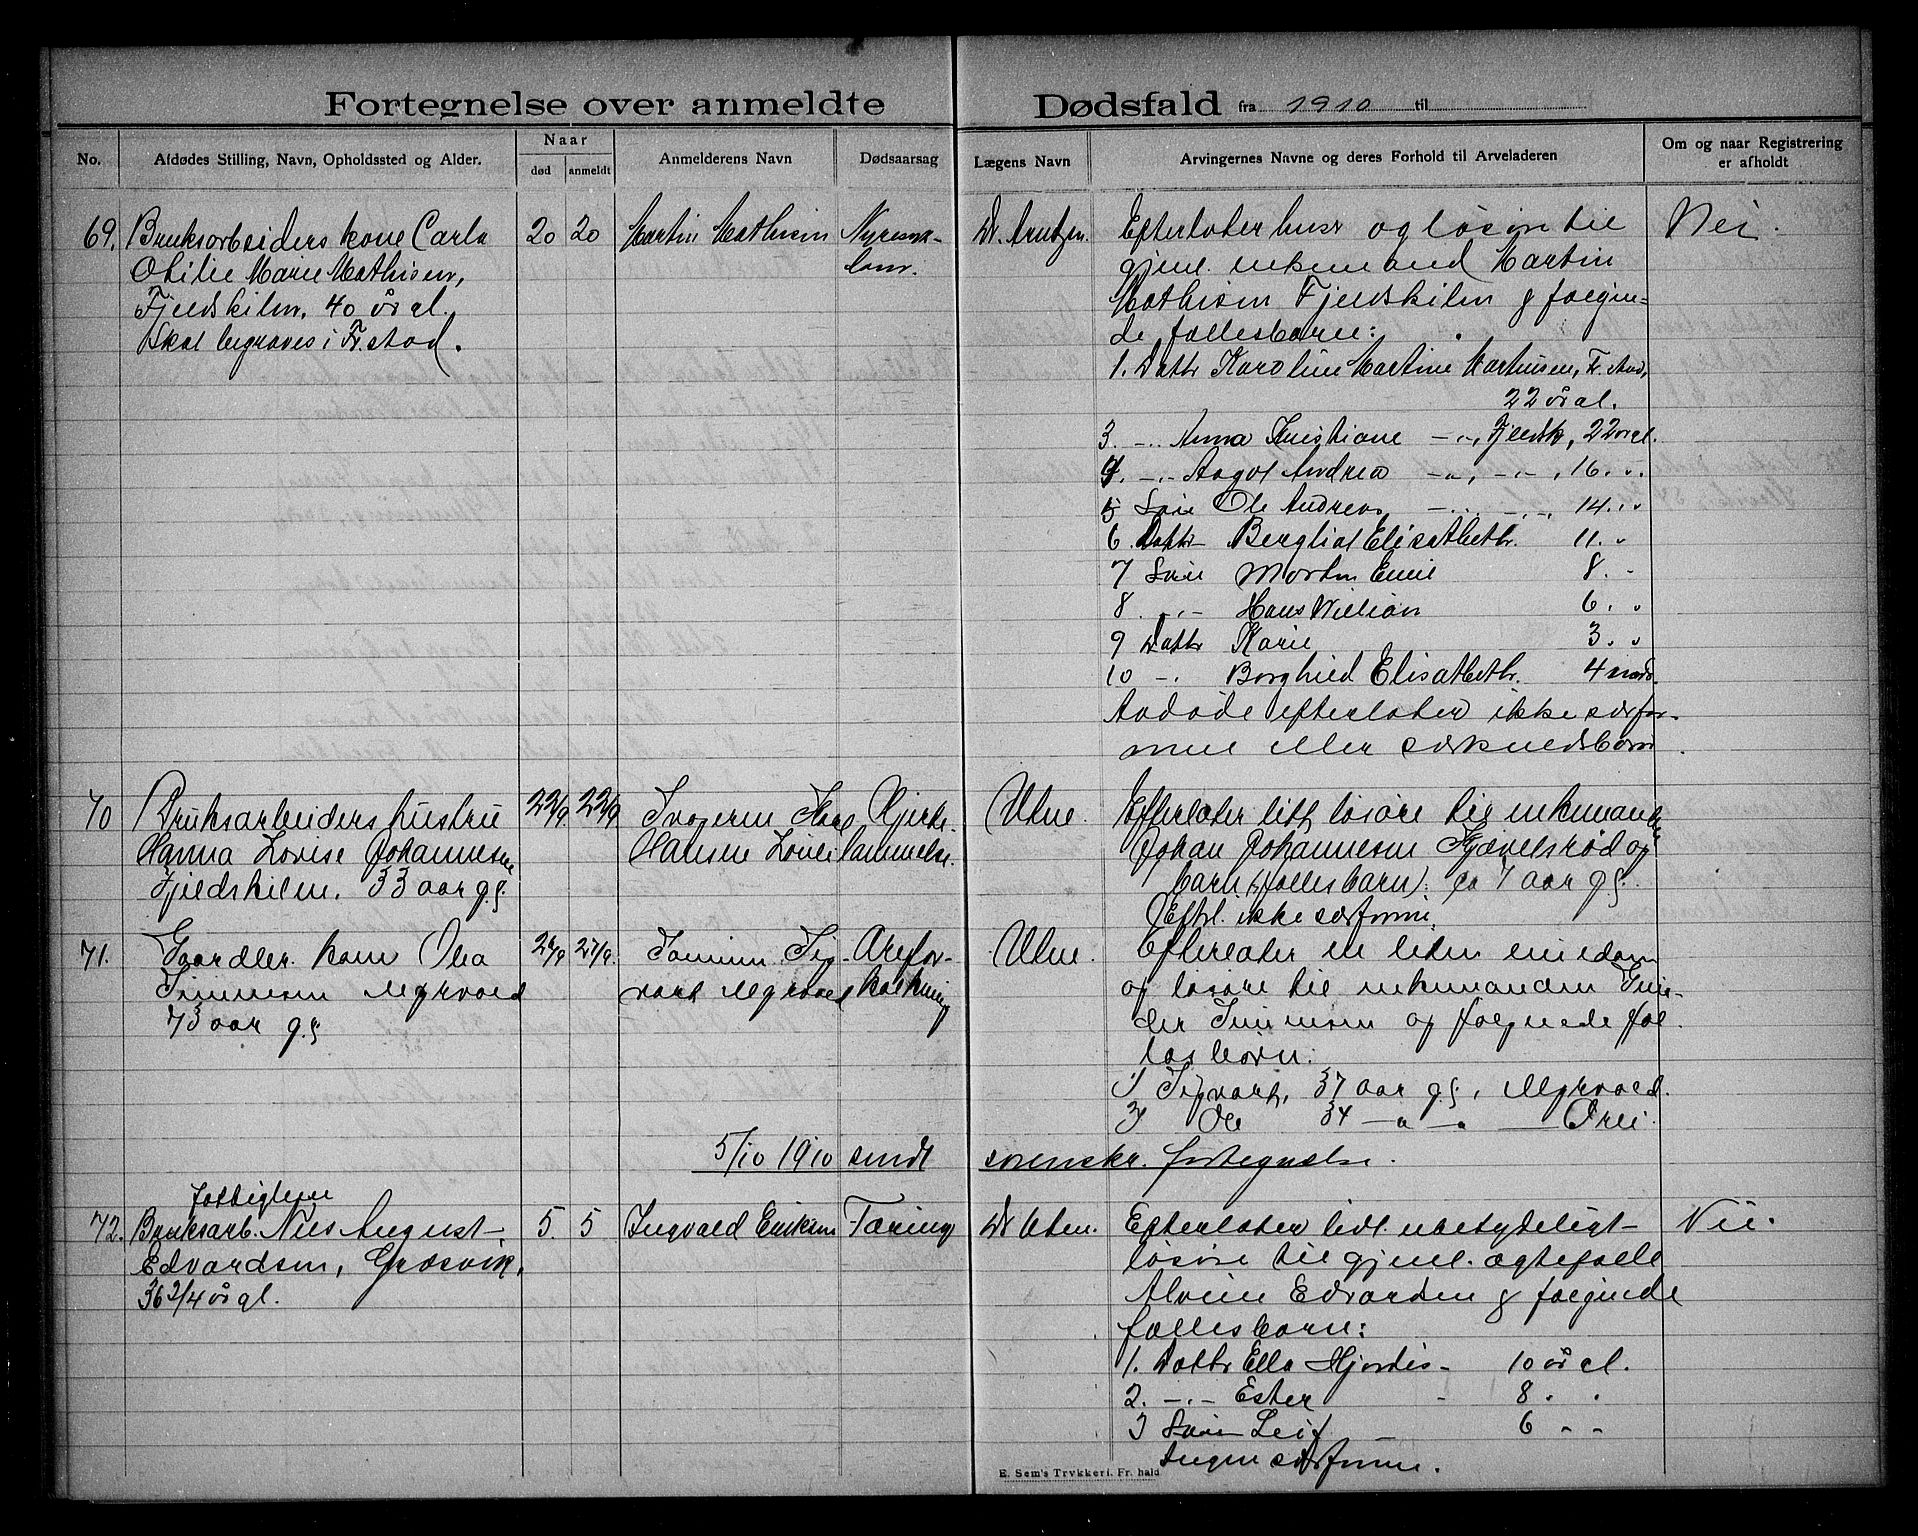 Fortegnelse over anmeldte Dødsfald fra 1910 til
No.
Afdødes Stilling, Navn, Opholdssted og Alder.
Naar
død
anmeldt
Anmelderens Navn
Dødsaarsag
Lægens Navn
Arvingernes Navne og deres Forhold til Arveladeren
Om og naar Registrering
er afholdt
69. Bruksarbeiders kone Carla
Otilie Marie Mathisen,
Fjeldskilen, 40 år gl.
Skal begraves i Fr.stad.
20 20
Martin Mathisen
Dr. Arntzen.
Efterlater hus og løsøre til
gjenl. enkemand Martin
Mathisen Fjeldskilen & følgen-
de fællesbarn:
1. Datter Karoline Martine Mathisen, Fr.stad,
22 år gl.
3. -"- Anna Kristiane -"-, Fjeldsk, 22 år gl.
4. -"- Aagot Andrea -"-, -"-, 16. "
5 Søn Ole Andreas -"- -"-, 14. "
6. Datter Bergliot Elisabeth. 11. "
7 Søn Morten Emil 8. "
8 -"- Hans William 6. "
9 Datter Karie 3. "
10 -"- Borghild Elisabeth. 4 mdr.
Avdøde efterlater ikke særfor-
mue eller særkuldsbarn.
Nei.
70 Bruksarbeiders hustru
Hanna Lovise Johannesen
Fjeldskilen. 33 aar gl.
22/9. 22/9
Svogeren
Hansen
Hjerte-
lammelse.
Utne.
Efterlater litt løsøre til enkemanden
Johan Johannesen Kjævelsrød og
barn (fællesbarn): ca 7 aar gl.
Efterl. ikke særformue.
71. Gaardbr. kone Olea
Simensen Myrvold
73 aar gl.
27/9.
Sønnen Sig-
vart Myrvold
Arefor-
kalkning
Utne.
Efterlater en liten eiendom
og løsøre til enkemanden
Simensen og følgende fæl-
lesbørn:
1) Sigvart, 37 aar gl., Myrvold.
2) Ole 34 -"- -"-
5/10 1910 sendt svenskr. fortegnelse.
Fattiglem
72. Bruksarb. Nils August
Edvardsen, Græsvik,
36 3/4 år gl.
5. 5
Ingvald Eriksen
Tæring
Dr Utne.
Efterlater lidt ubetydeligt
løsøre til gjenl. ægtefælle
Alvine Edvardsen & følgende
fællesbarn:
1. Dattr Ella Hjørdis - 10 år gl.
2. -"- Ester - 8 " "
3 Søn Leif - 6 " "
Ingen særformue.
Nei.
E. Sem's Trykkeri. Fr.hald